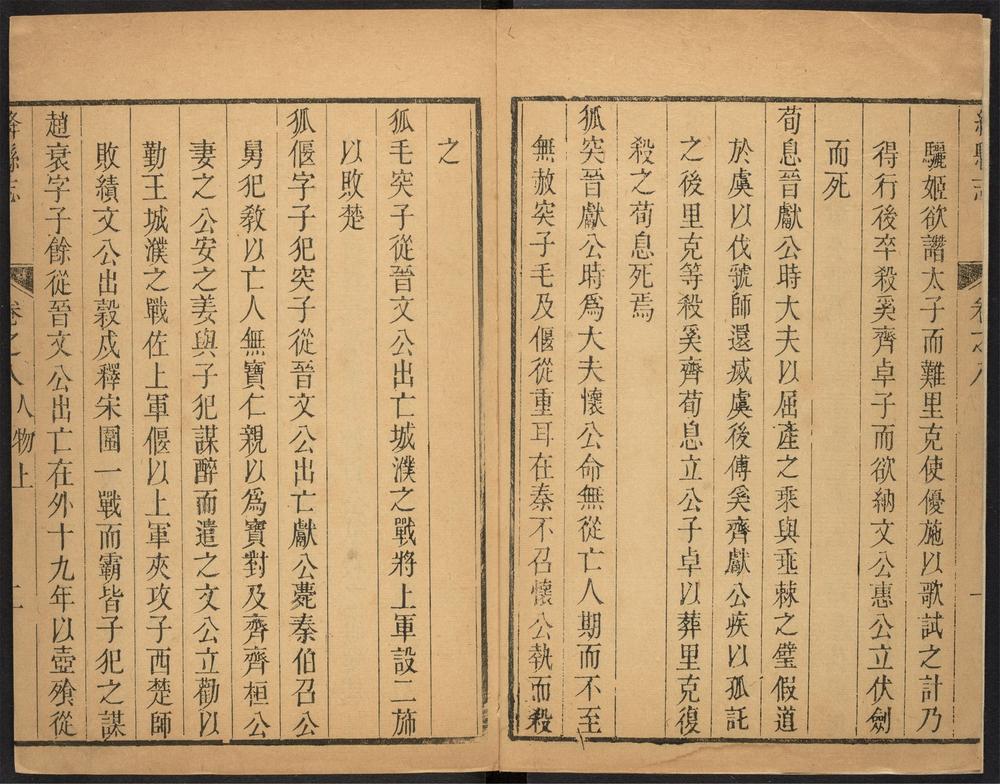 驪姬欲譖太子而難里克使優施以歌試之計乃
得行後卒殺奚齊卓子而欲納文公惠公立伏劍
而死
荀息晉獻公時大夫以屈產之乘與垂棘之璧假道
於虞以伐虢師還滅虞後傅奚齊獻公疾以孤託
之後里克等殺奚齊荀息立公子卓以葬里克復
殺之荀息死焉
狐突晉獻公時爲大夫懷公命無從亡人期而不至
無赦突子毛及偃從重耳在秦不召懷公執而殺
之
狐毛突子從晉文公出亡城濮之戰將上軍設二旆
以敗楚
狐偃字子犯突子從晉文公出亡獻公薨秦伯召公
舅犯教以亡人無寶仁親以爲寶對及齊齊桓公
妻之公安之姜與子犯謀醉而遣之文公立勸以
勤王城濮之戰佐上軍偃以上軍夾攻子西楚師
敗績文公出穀戍釋宋圍一戰而霸皆子犯之謀
趙衰字子餘從晉文公出亡在外十九年以壺飧從
絳縣志 卷之八 人物上 二